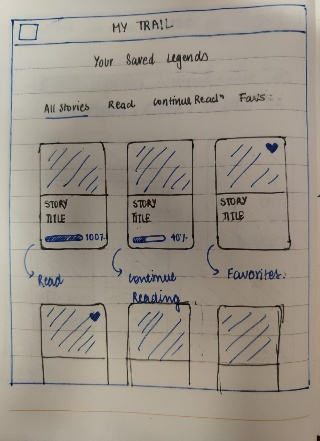 MY TRAIL
Your Saved Legends
All Stories Read Continue Read" Favs:
STORY TITLE
100%
STORY TITLE
40%
STORY TITLE
Read
Continue Reading
Favorites.